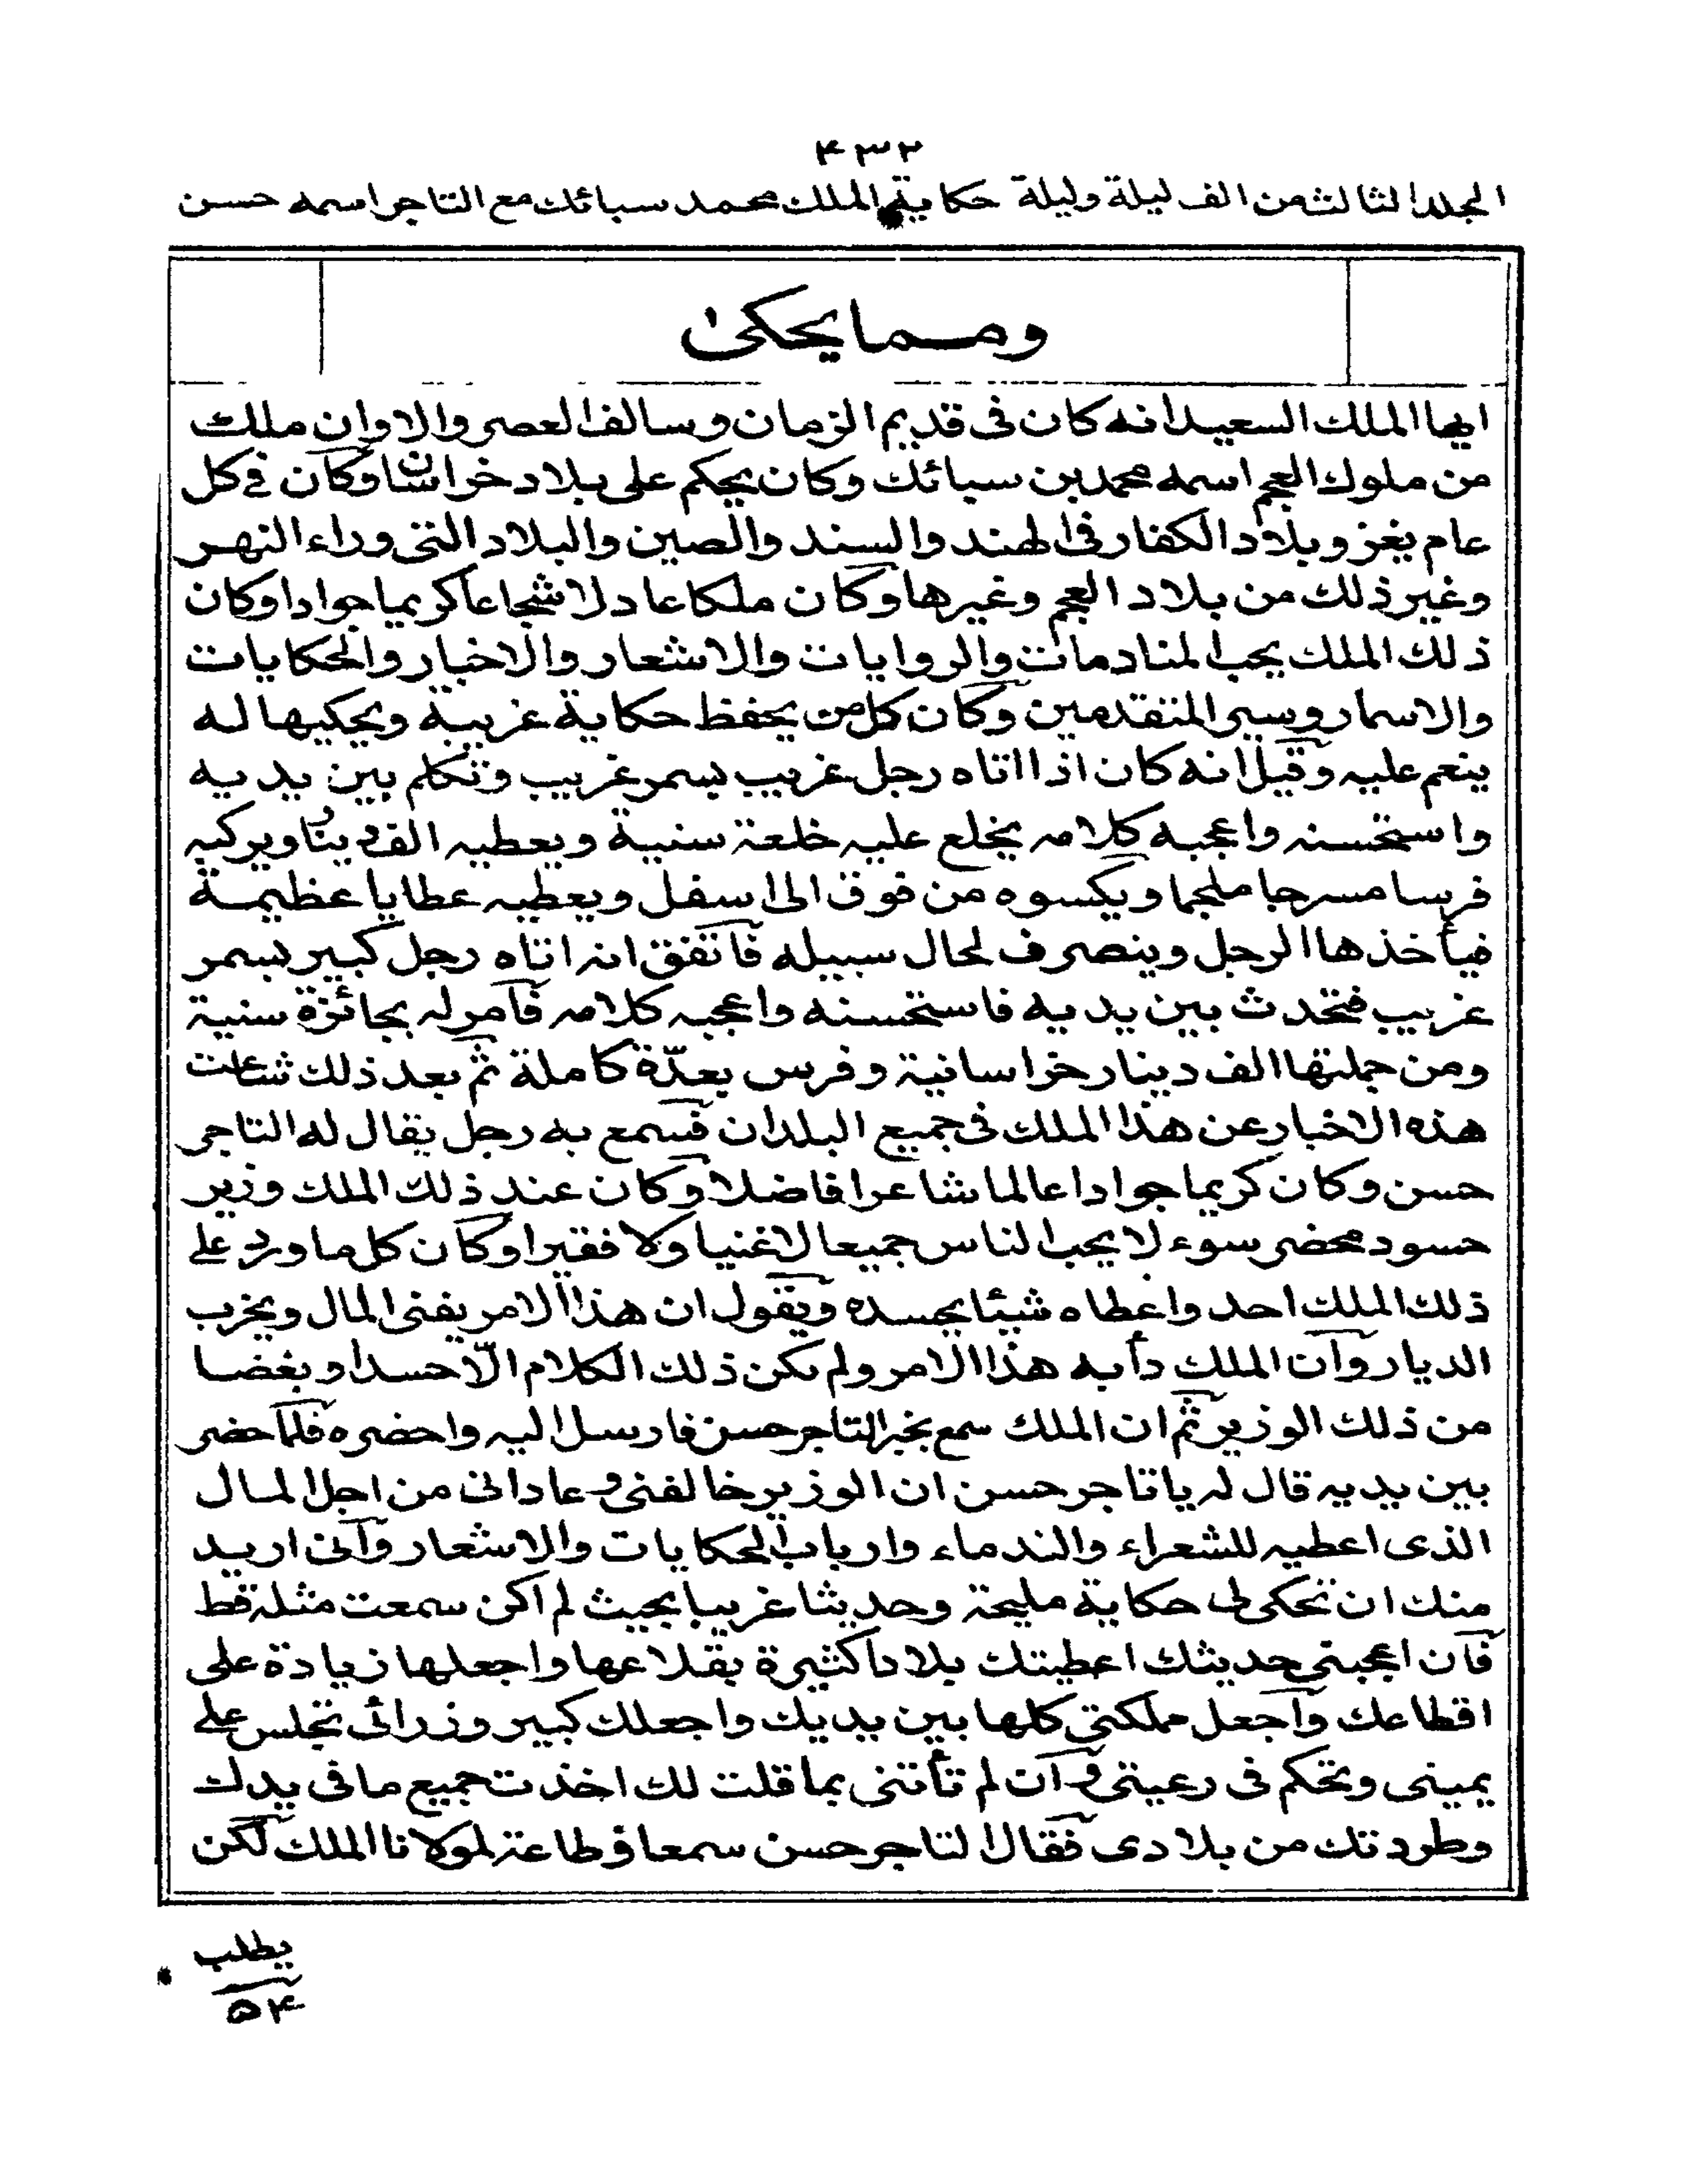 ۴۳۲
المجلد الثالث من الف ليلة وليلة حكاية الملك محمد سبائك مع التاجر اسمه حسن
ومما يحكى
ايها الملك السعيد انه كان فى قديم الزمان وسالف العصر والاوان ملك
من ملوك العجم اسمه محمد بن سبائك وكان يحكم على بلاد خراسان وكان فى كل
عام يغزو بلاد الكفار فى الهند والسند والصين والبلاد التى وراء النهر
وغير ذلك من بلاد العجم وغيرها وكان ملكا عادلا شجاعا كريما جوادا وكان
ذلك الملك يحب المنادمات والروايات والاشعار والاخبار والحكايات
والاسمار وسير المتقدمين وكان كل من يحفظ حكاية غريبة ويحكيها له
ينعم عليه وقيل انه كان اذا اتاه رجل غريب بسمر غريب وتكلم بين يديه
واستحسنه واعجبه كلامه يخلع عليه خلعة سنية ويعطيه الف دينار ويركبه
فرسا مسرجا ملجما ويكسوه من فوق الى اسفل ويعطيه عطايا عظيمة
فيأخذها الرجل وينصرف لحال سبيله فاتفق انه اتاه رجل كبير بسمر
غريب فتحدث بين يديه فاستحسنه واعجبه كلامه فامر له بجائزة سنية
ومن جملتها الف دينار خراسانية وفرس بعدّة كاملة ثم بعد ذلك شاعت
هذه الاخبار عن هذا الملك فى جميع البلدان فسمع به رجل يقال له التاجر
حسن وكان كريما جوادا عالما شاعرا فاضلا وكان عند ذلك الملك وزير
حسود محضر سوء لا يحب الناس جميعا لا غنيا ولا فقيرا وكان كل ما ورد على
ذلك الملك احد واعطاه شيئا يحسده ويقول ان هذا الامر يفنى المال ويخرب
الديار وان الملك دأبه هذا الامر ولم يكن ذلك الكلام الّا حسدا وبغضا
من ذلك الوزير ثم ان الملك سمع بخبر التاجر حسن فارسل اليه واحضره فلما حضر
بين يديه قال له يا تاجر حسن ان الوزير خالفنى وعادانى من اجل المال
الذى اعطيه للشعراء والندماء وارباب الحكايات والاشعار وانى اريد
منك ان تحكى لى حكاية مليحة وحديثا غريبا بحيث لم اكن سمعت مثله قط
فان اعجبنى حديثك اعطيتك بلادا كثيرة بقلاعها واجعلها زيادة على
اقطاعك واجعل مملكتى كلها بين يديك واجعلك كبير وزرائى تجلس على
يمينى وتحكم فى رعيتى وان لم تأتنى بما قلت لك اخذت جميع ما فى يدك
وطردتك من بلادى فقال التاجر حسن سمعا وطاعة لمولانا الملك لكن
يطلب
۵۴